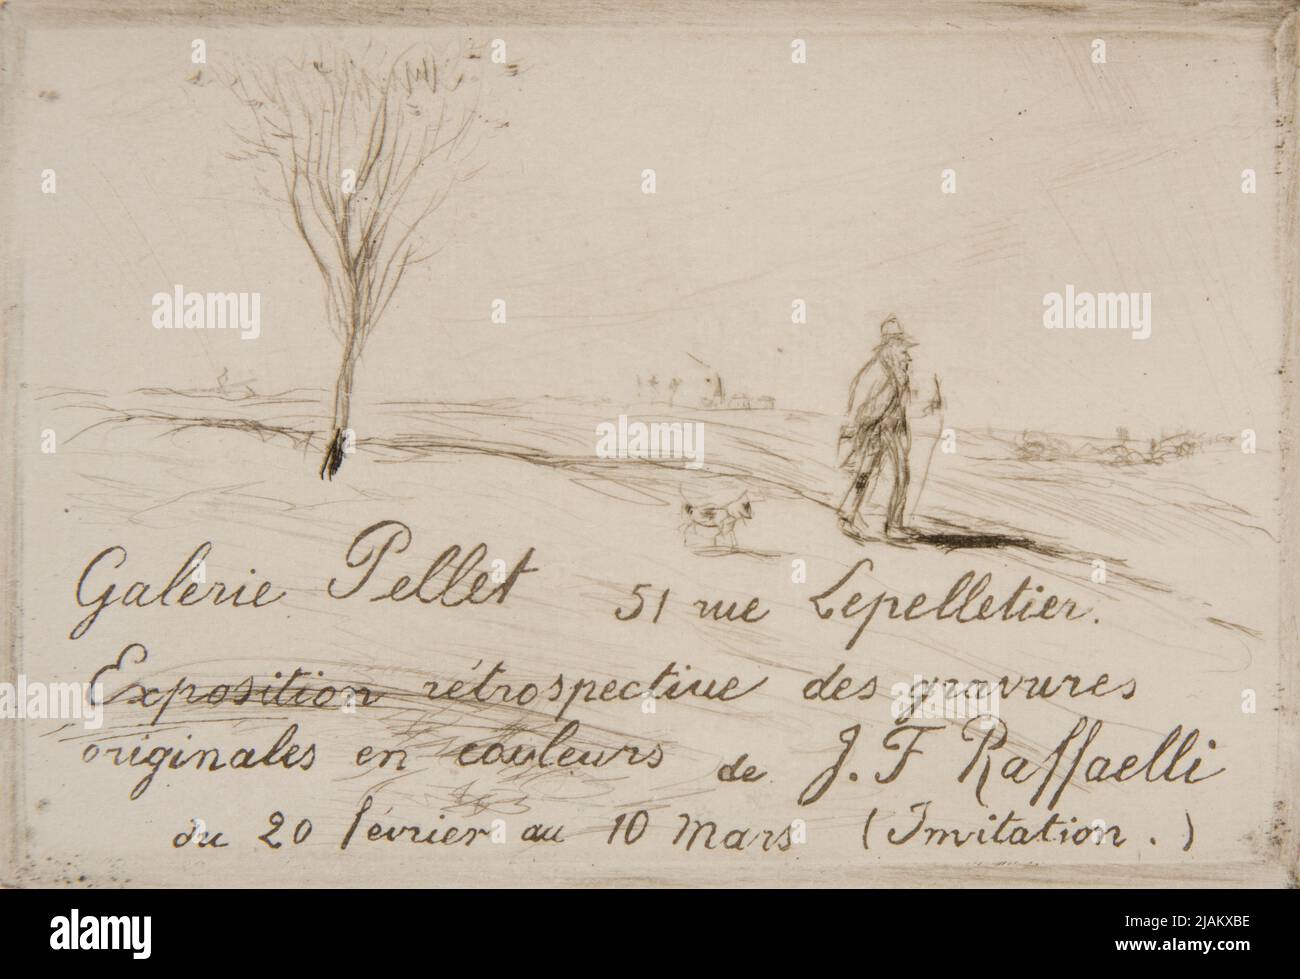 Galerie Pellet 51 rue Lepelletier.
Exposition rétrospective des gravures
originales en couleurs de J. F Raffaelli
du 20 février au 10 Mars (Invitation.)
alamy
Image ID: 2JAKXBE
www.alamy.com